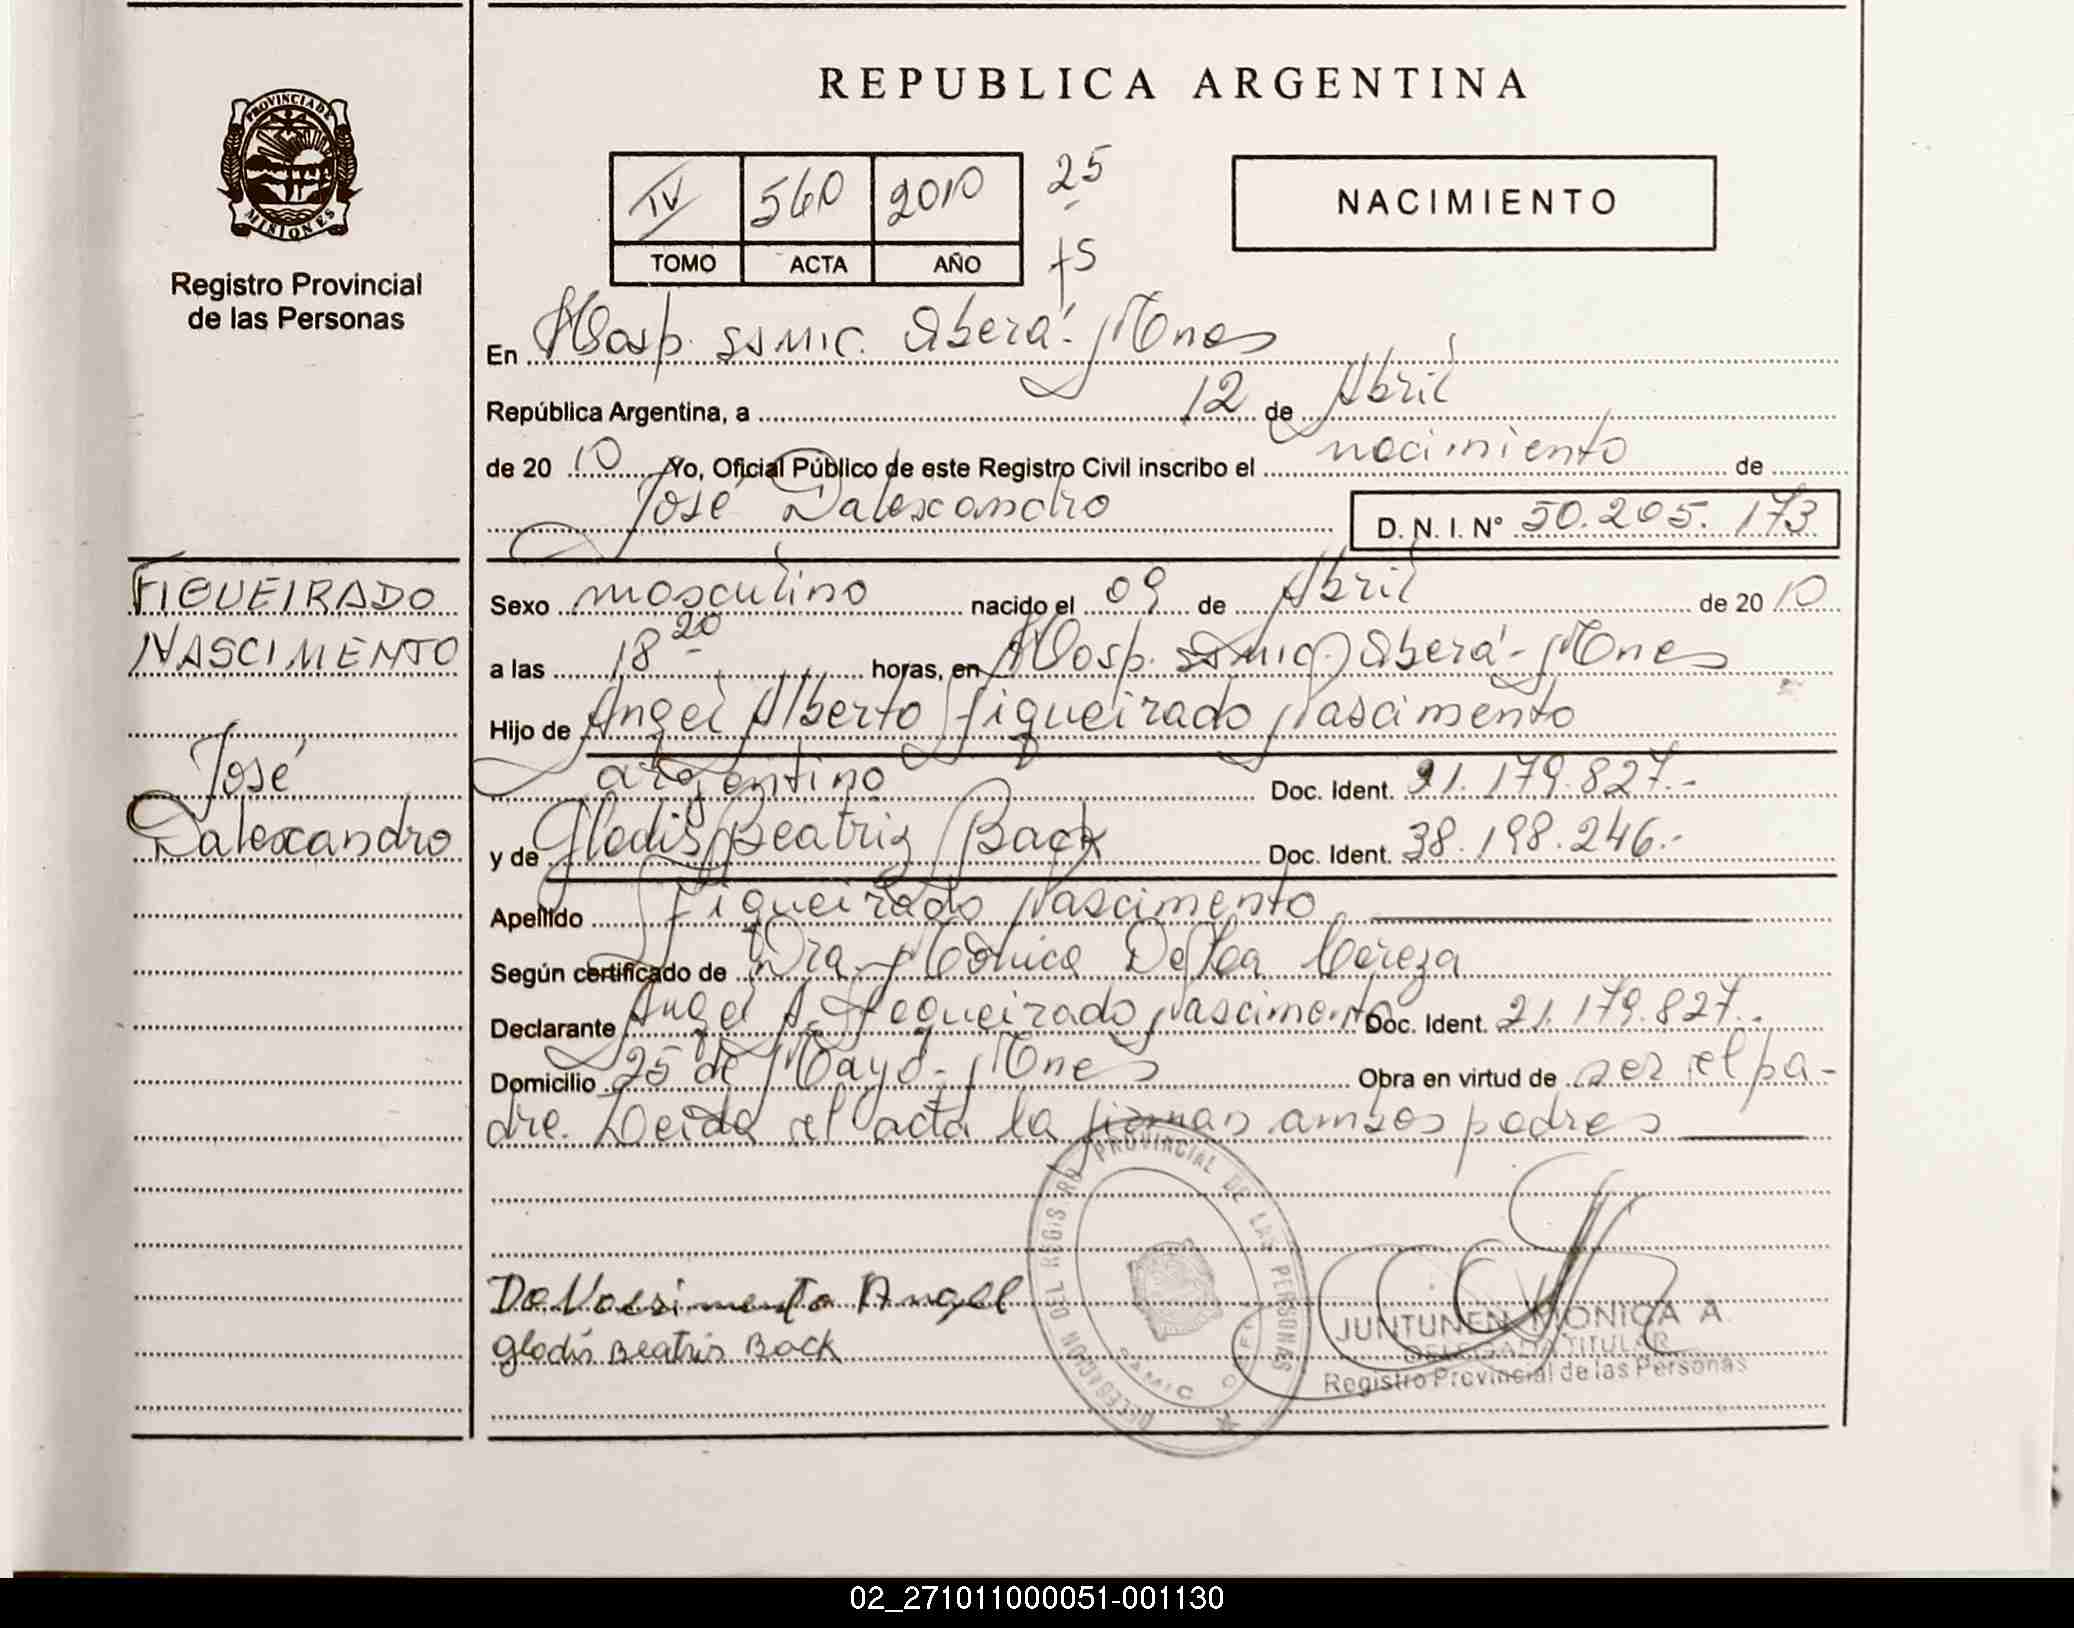 PROVINCIA DE
MISIONES
Registro Provincial
de las Personas
REPUBLICA ARGENTINA
IV 560 2010 25
TOMO ACTA AÑO 75
NACIMIENTO
En Hosp. SSMIC. Oberá - Mnes
República Argentina, a 12 de Abril
de 20 10 Yo, Oficial Público de este Registro Civil inscribo el nacimiento de
José Dalexandro D. N. I. N° 50.205.173
FIGUEIRADO
NASCIMENTO
José
Dalexandro
Sexo masculino nacido el 09 de Abril de 20 10
a las 18 20 horas, en Hosp. SSMIC. Oberá - Mnes
Hijo de Angel Alberto Figueirado Nascimento
argentino Doc. Ident. 21.179.827.-
y de Gladis Beatriz Back Doc. Ident. 38.198.246.-
Apellido Figueirado Nascimento
Según certificado de Dra. Mónica De La Cereza
Declarante Angel A. Fegueirado Nascimento Doc. Ident. 21.179.827.
Domicilio 25 de Mayo - Mnes Obra en virtud de ser el pa-
dre. Leida el acta la firman ambos padres
Angel
Gladis Beatris Back
DELEGACION DEL REGISTRO PROVINCIAL DE LAS PERSONAS
SAMIC
JUNTUNEN MONICA A.
DELEGADA TITULAR
Registro Provincial de las Personas
02_271011000051-001130